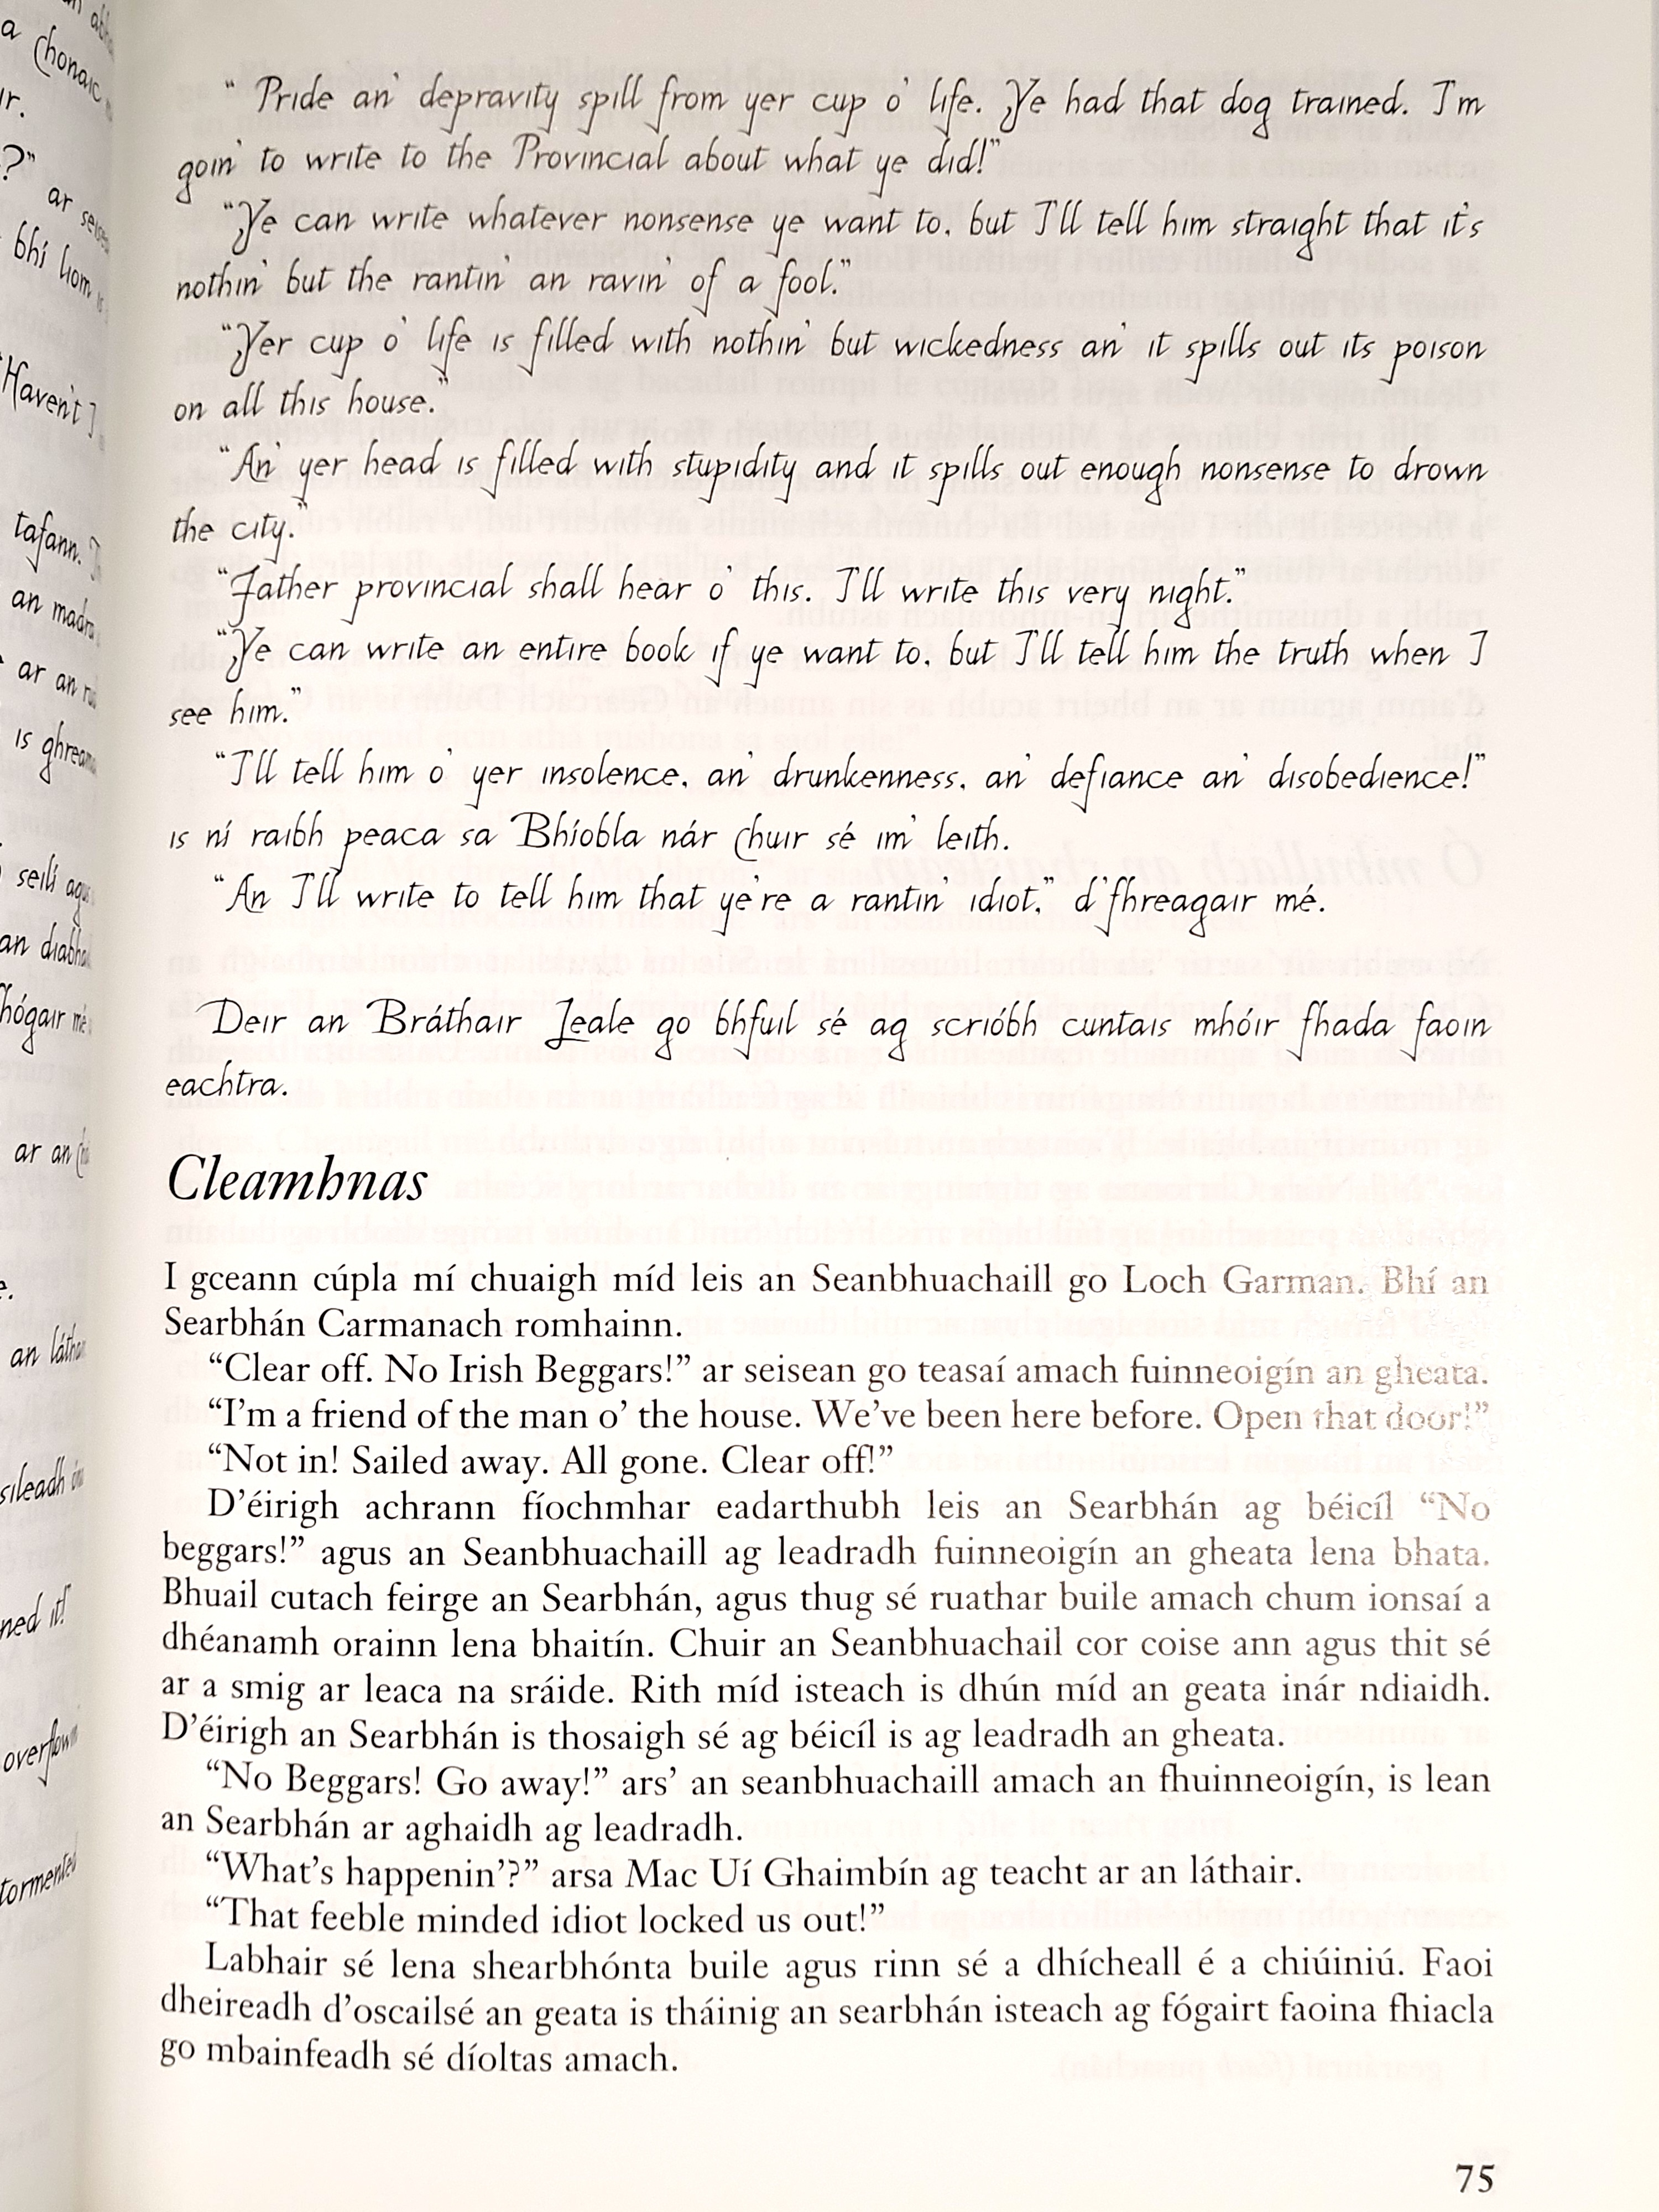 “ Pride an’ depravity spill from yer cup o’ life. Ye had that dog trained. I’m
goin’ to write to the Provincial about what ye did!”
“Ye can write whatever nonsense ye want to, but I’ll tell him straight that it’s
nothin’ but the rantin’ an ravin’ of a fool.”
“Yer cup o’ life is filled with nothin’ but wickedness an’ it spills out its poison
on all this house.”
“An’ yer head is filled with stupidity and it spills out enough nonsense to drown
the city.”
“Father provincial shall hear o’ this. I’ll write this very night.”
“Ye can write an entire book if ye want to, but I’ll tell him the truth when I
see him.”
“I’ll tell him o’ yer insolence, an’ drunkenness, an’ defiance an’ disobedience!”
is ní raibh peaca sa Bhíobla nár chuir sé im’ leith.
“An I’ll write to tell him that ye’re a rantin’ idiot,” d’fhreagair mé.
Deir an Bráthair Leale go bhfuil sé ag scríobh cuntais mhóir fhada faoin
eachtra.
Cleamhnas
I gceann cúpla mí chuaigh míd leis an Seanbhuachaill go Loch Garman. Bhí an
Searbhán Carmanach romhainn.
“Clear off. No Irish Beggars!” ar seisean go teasaí amach fuinneoigín an gheata.
“I’m a friend of the man o’ the house. We’ve been here before. Open that door!”
“Not in! Sailed away. All gone. Clear off!”
D’éirigh achrann fíochmhar eadarthubh leis an Searbhán ag béicíl “No
beggars!” agus an Seanbhuachaill ag leadradh fuinneoigín an gheata lena bhata.
Bhuail cutach feirge an Searbhán, agus thug sé ruathar buile amach chum ionsaí a
dhéanamh orainn lena bhaitín. Chuir an Seanbhuachail cor coise ann agus thit sé
ar a smig ar leaca na sráide. Rith míd isteach is dhún míd an geata inár ndiaidh.
D’éirigh an Searbhán is thosaigh sé ag béicíl is ag leadradh an gheata.
“No Beggars! Go away!” ars’ an seanbhuachaill amach an fhuinneoigín, is lean
an Searbhán ar aghaidh ag leadradh.
“What’s happenin’?” arsa Mac Uí Ghaimbín ag teacht ar an láthair.
“That feeble minded idiot locked us out!”
Labhair sé lena shearbhónta buile agus rinn sé a dhícheall é a chiúiniú. Faoi
dheireadh d’oscailsé an geata is tháinig an searbhán isteach ag fógairt faoina fhiacla
go mbainfeadh sé díoltas amach.
75